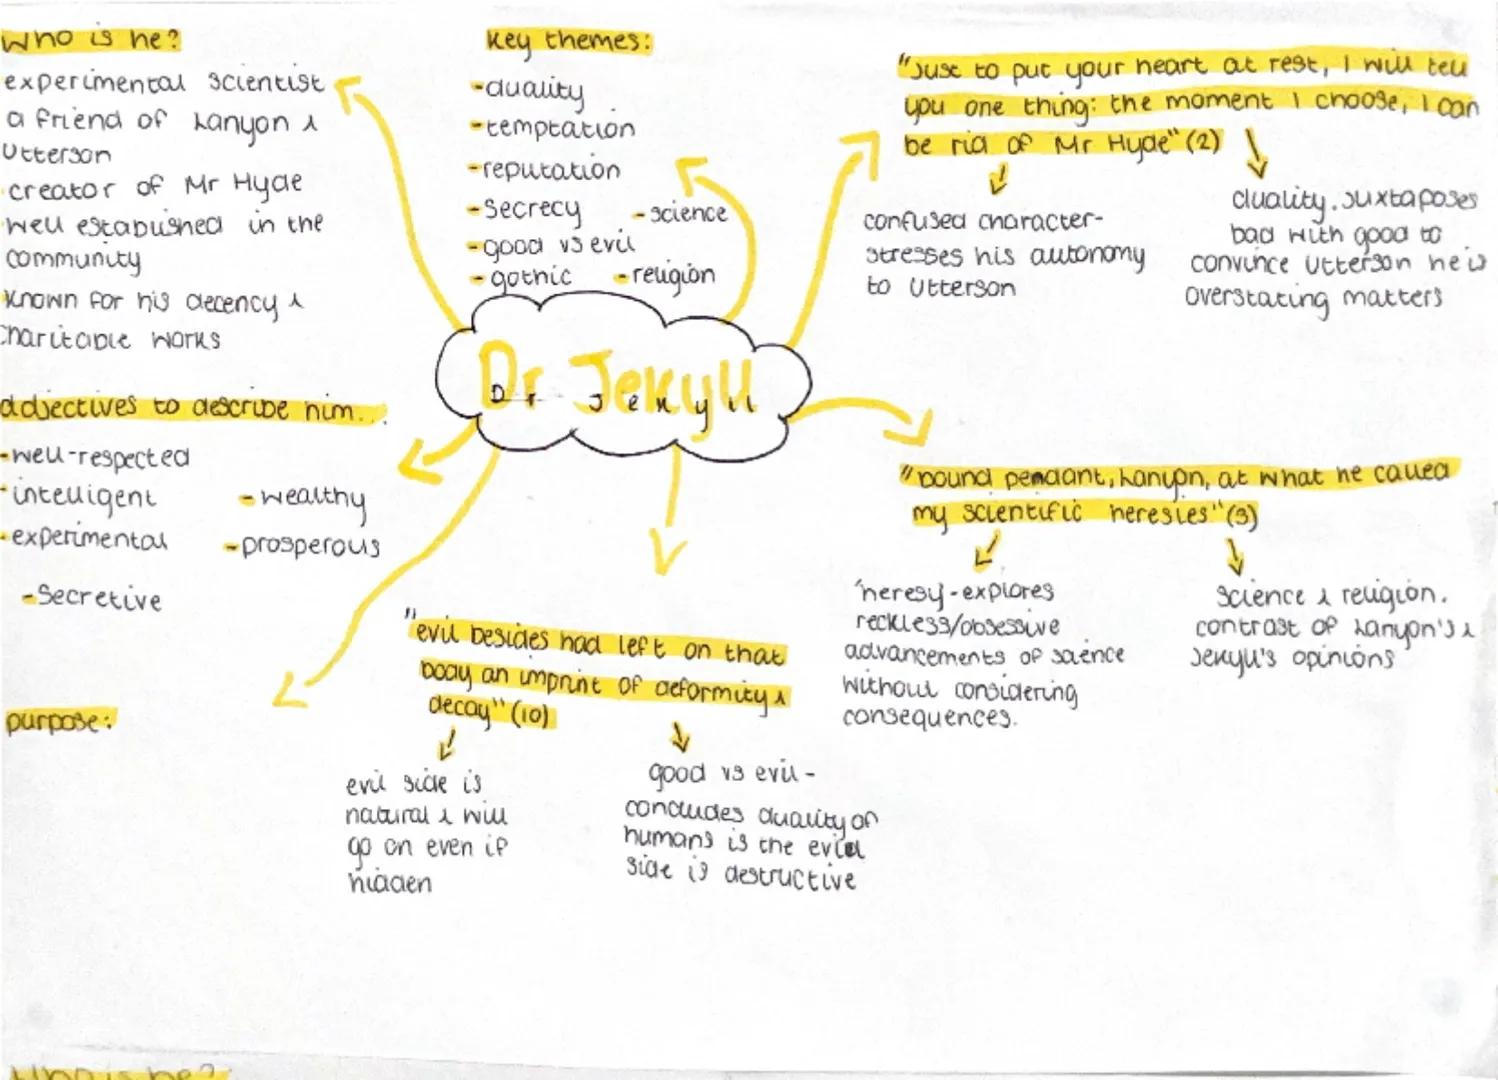 who is he?
experimental scientist
a friend of Lanyon &
Utterson
creator of Mr Hyde
well established in the
community
known for his decency &
charitable works
adjectives to describe him...
-well-respected
-intelligent
-experimental
-wealthy
-prosperous
-secretive
purpose:
key themes:
-duality
-temptation
-reputation
-secrecy
-science
-good vs evil
-gothic
-religion
Dr Jekyll
"Just to put your heart at rest, I will tell
you one thing: the moment I choose, I can
be rid of Mr Hyde" (2)
confused character-
stresses his autonomy
to Utterson
duality. juxtaposes
bad with good to
convince Utterson he is
overstating matters
"bound pendant, Lanyon, at what he called
my scientific heresies" (3)
'heresy - explores
reckless/obsessive
advancements of science
without considering
consequences.
science & religion.
contrast of Lanyon's &
Jekyll's opinions
"evil besides had left on that
body an imprint of deformity &
decay" (10)
evil side is
natural & will
go on even if
hidden
good vs evil -
concludes duality of
humans is the evil
side is destructive
who is he?